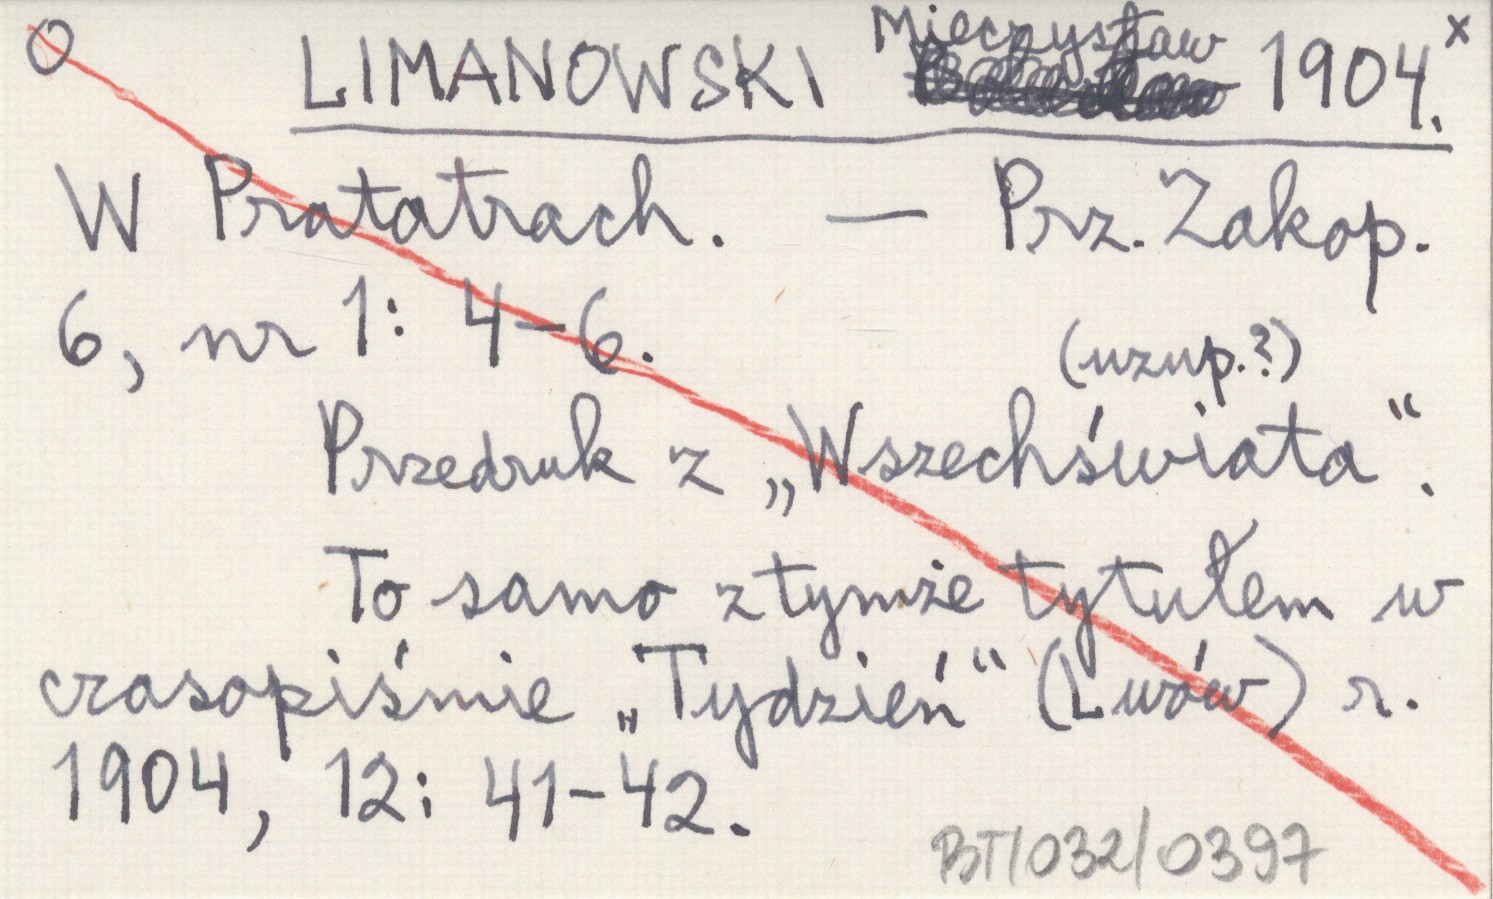 O LIMANOWSKI Mieczysław 1904.x
W Pratatrach. — Prz. Zakop.
6, nr 1: 4–6.
(uzup.?)
Przedruk z „Wszechświata“.
To samo z tymże tytułem w
czasopiśmie „Tydzień“ (Lwów) r.
1904, 12: 41–42.
BT/032/0397